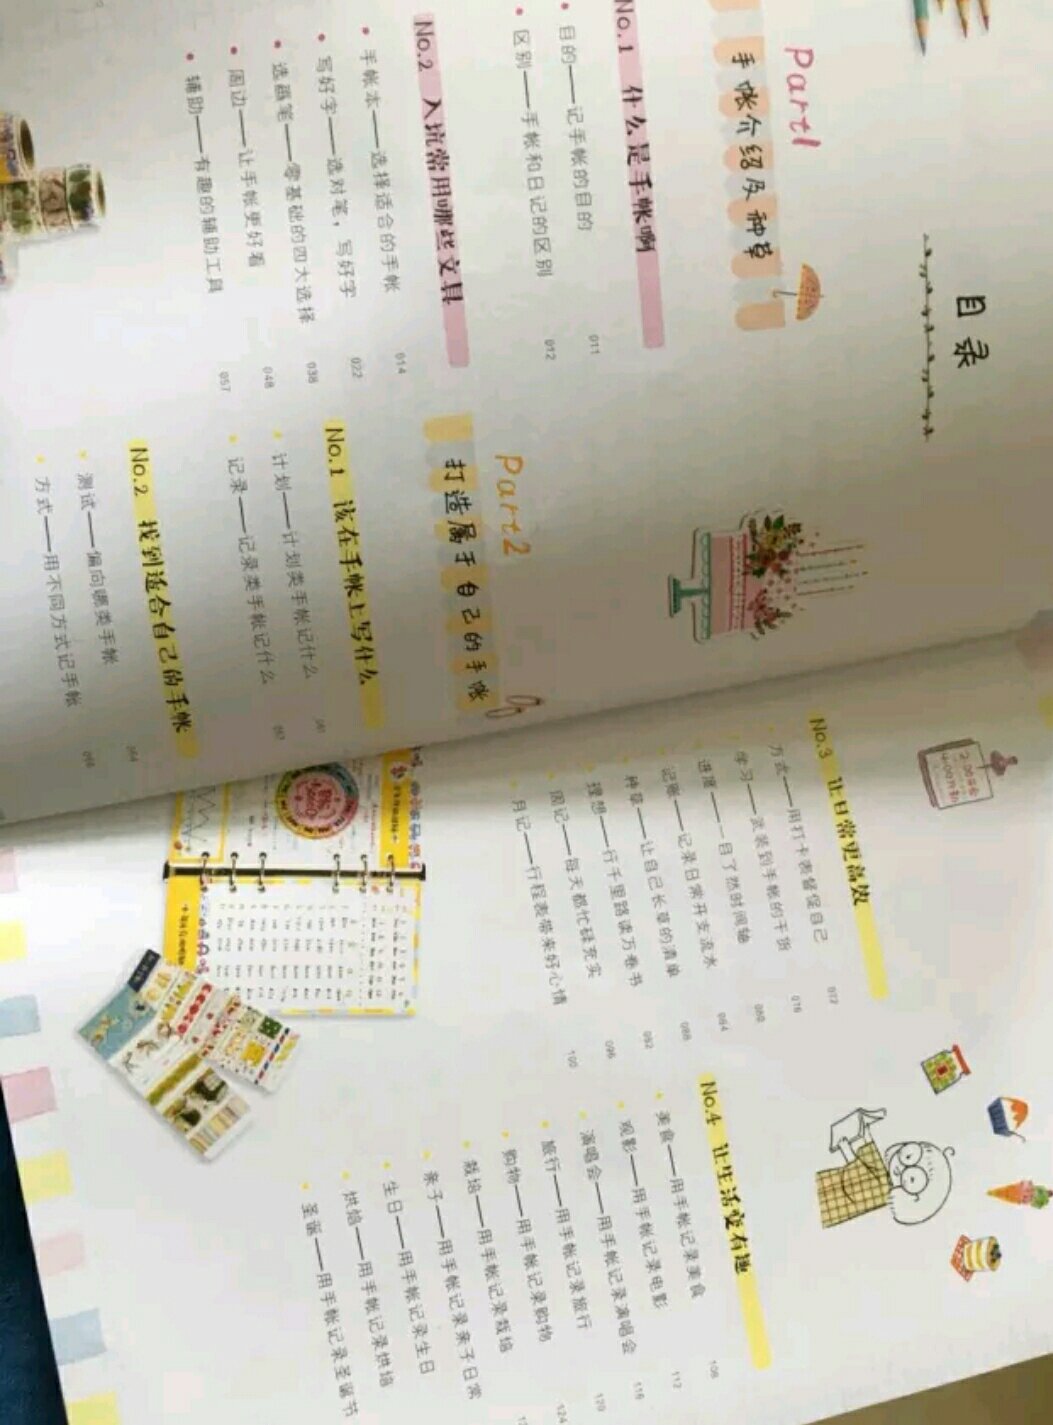 目录
Part1
手帐介绍及种草
No.1 什么是手帐啊
目的——记手帐的目的 011
区别——手帐和日记的区别 012
No.2 入坑常用哪些文具
手帐本——选择适合的手帐 014
写好字——选对笔，写好字 022
选画笔——零基础的四大选择 038
周边——让手帐更好看 048
辅助——有趣的辅助工具 057
Part2
打造属于自己的手帐
No.1 该在手帐上写什么
计划——计划类手帐记什么 061
记录——记录类手帐记什么
No.2 找到适合自己的手帐
测试——偏向哪类手帐 064
方式——用不同方式记手帐
No.3 让日常更高效
方式——用打卡表督促自己 072
学习——武装到手帐的干货 076
进度——一目了然时间轴 080
记账——记录日常开支流水 084
种草——让自己长草的清单 088
理想——行千里路读万卷书 092
周记——每天都忙碌充实 096
月记——行程表带来好心情 100
No.4 让生活变有趣
美食——用手帐记录美食 106
观影——用手帐记录电影 112
演唱会——用手帐记录演唱会 116
旅行——用手帐记录旅行 120
购物——用手帐记录购物 124
栽培——用手帐记录栽培
亲子——用手帐记录亲子日常
生日——用手帐记录生日
烘焙——用手帐记录烘焙
圣诞——用手帐记录圣诞节